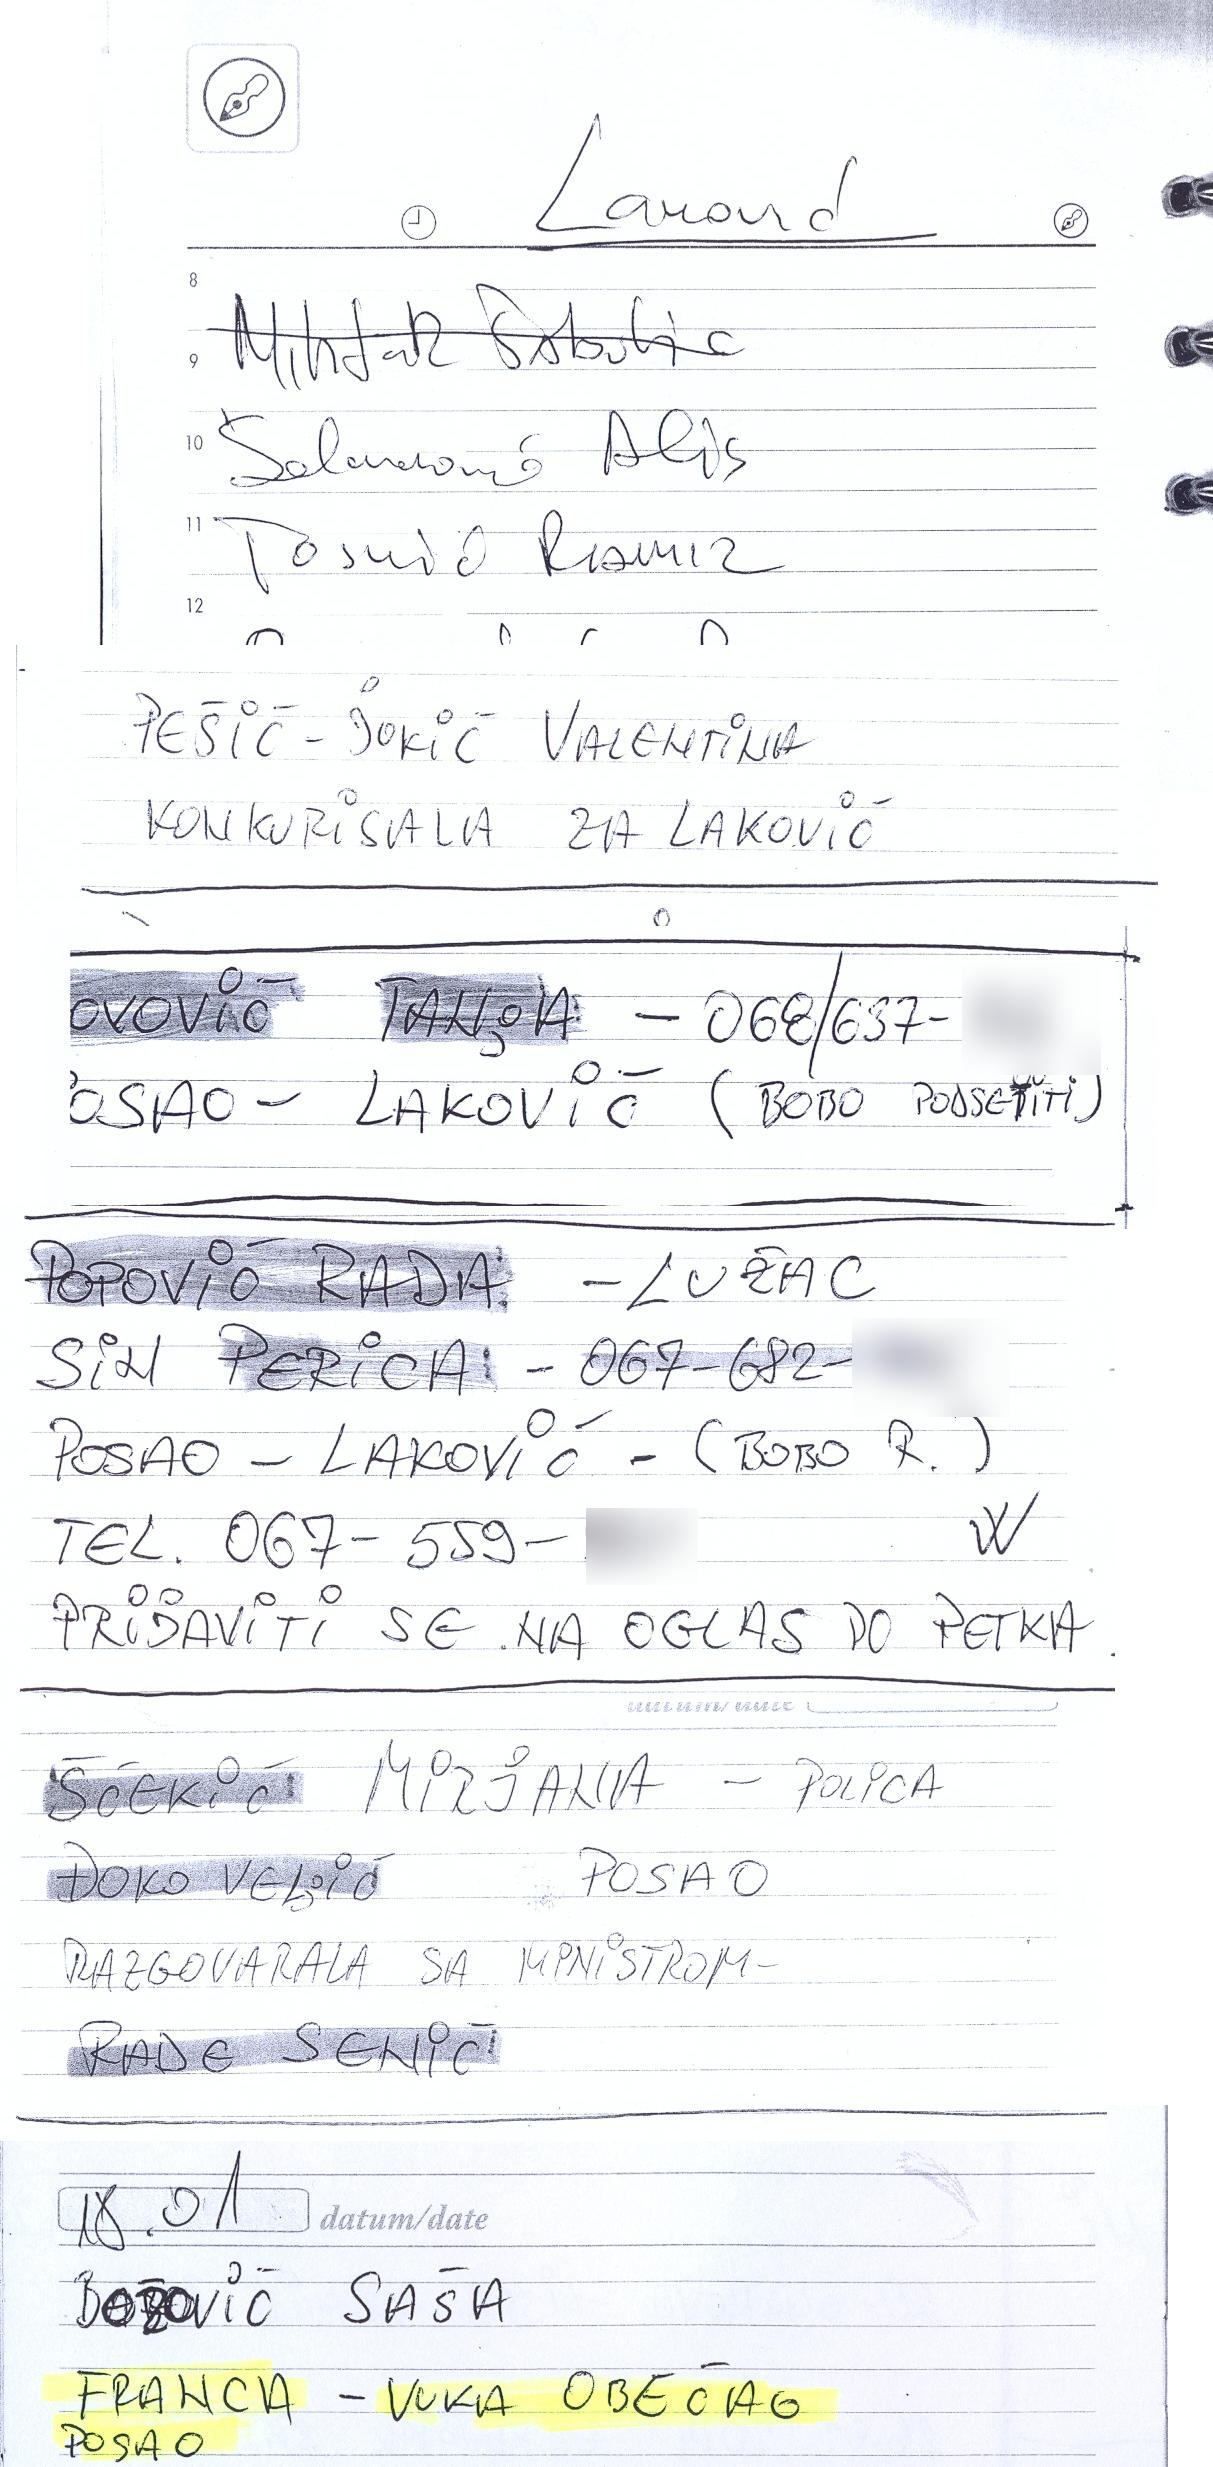 8
9
10
11
12
Ramiz
PEŠIĆ - JOKIĆ VALENTINA
KONKURISALA ZA LAKOVIĆ
OVOVIĆ TANJA - 068/637-
OSAO - LAKOVIĆ (BOBO PODSETITI)
POPOVIĆ RADA - LUŽAC
SIN PERICA - 067-682-
POSAO - LAKOVIĆ - (BOBO R.)
TEL. 067-559-
PRIJAVITI SE NA OGLAS DO PETKA.
datum/date
ŠĆEKIĆ MIRJANA - POLICA
ĐOKO VELJIĆ POSAO
RAZGOVARALA SA MINISTROM-
RADE SENIĆ
18.01 datum/date
SAŠA
FRANCA - VUKA OBEĆAO
POSAO